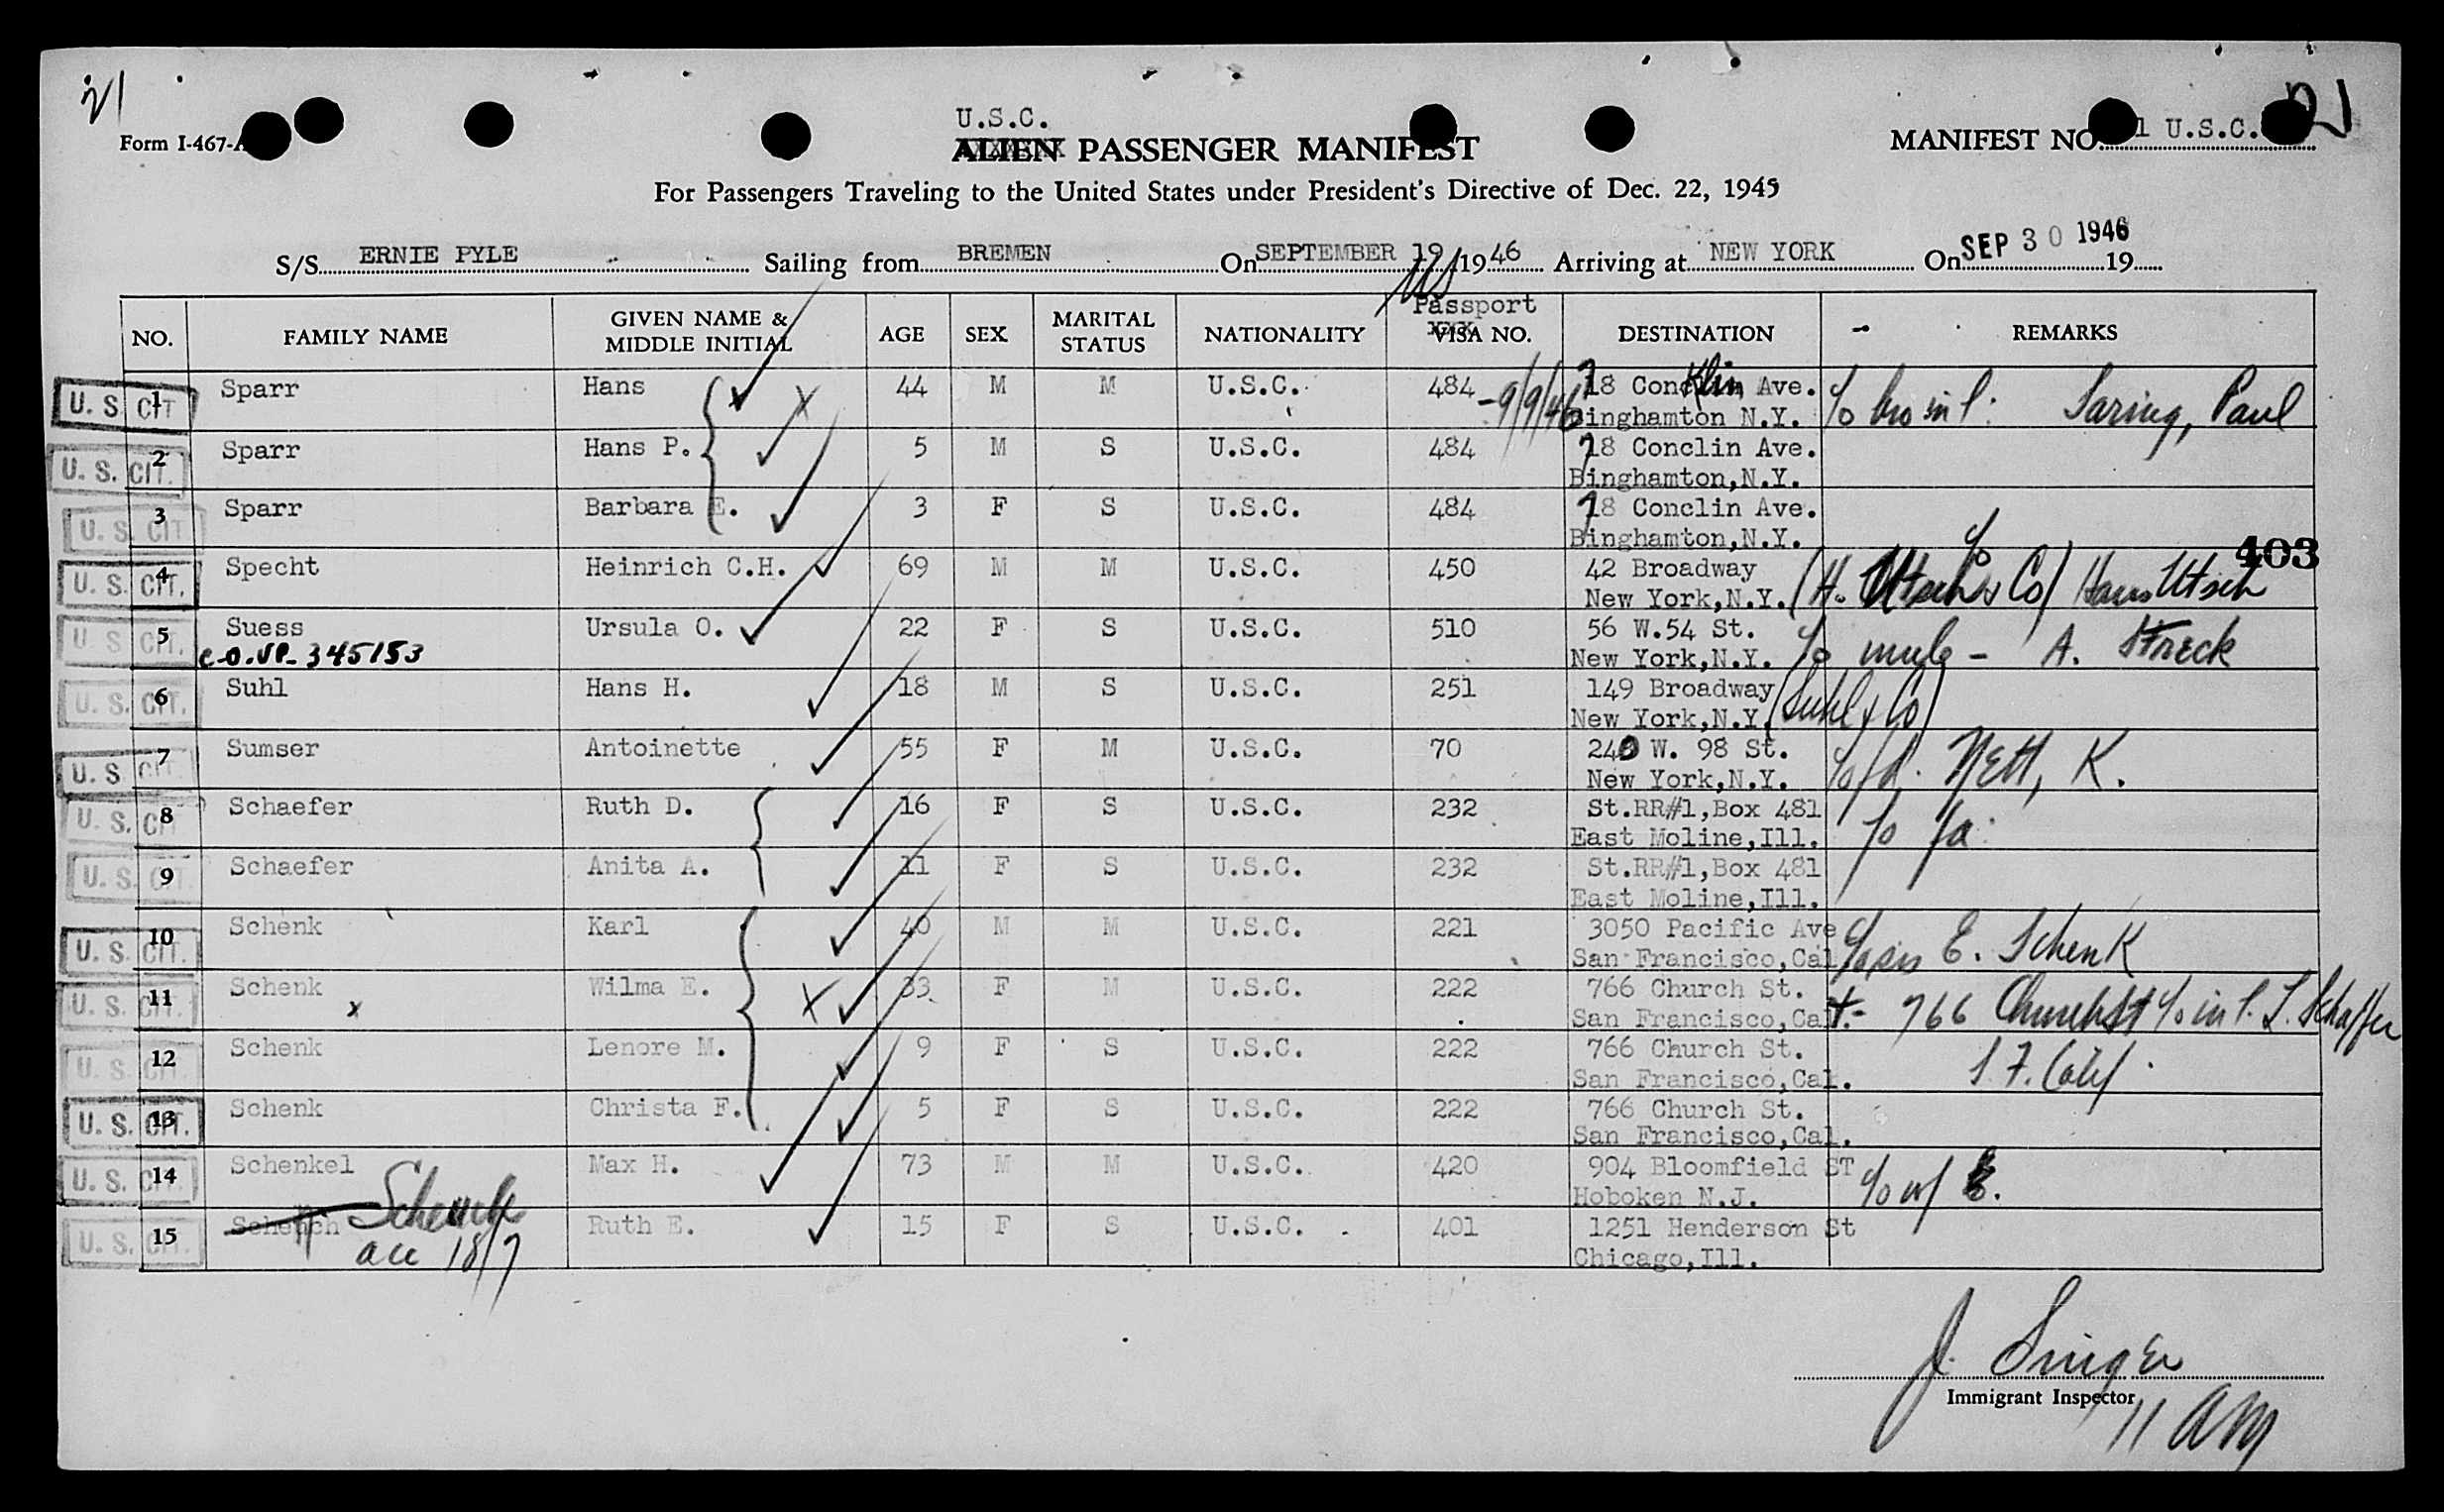 21
Form I-467-A
U.S.C.
ALIEN PASSENGER MANIFEST
MANIFEST NO. 1 U.S.C. 21
For Passengers Traveling to the United States under President's Directive of Dec. 22, 1945
S/S ERNIE PYLE Sailing from BREMEN On SEPTEMBER 19 1946 Arriving at NEW YORK On SEP 30 1946 19
NO. FAMILY NAME GIVEN NAME & MIDDLE INITIAL AGE SEX MARITAL STATUS NATIONALITY US Passport VISA NO. DESTINATION REMARKS
U. S. CIT 1 Sparr Hans 44 M M U.S.C. 484 -9/9/46 718 Conclin Ave. c/o bro in l: Saring, Paul
klin
Binghamton N.Y.
U. S. CIT. 2 Sparr Hans P. 5 M S U.S.C. 484 718 Conclin Ave.
Binghamton,N.Y.
U. S. CIT 3 Sparr Barbara E. 3 F S U.S.C. 484 718 Conclin Ave.
Binghamton,N.Y.
403
U. S. CIT. 4 Specht Heinrich C.H. 69 M M U.S.C. 450 42 Broadway c/o
New York,N.Y. (H. Utsch & Co) Hans Utsch
U. S. CIT. 5 Suess Ursula O. 22 F S U.S.C. 510 56 W.54 St.
c.o.VP- 345153 New York,N.Y. c/o uncle - A. Streck
U. S. CIT. 6 Suhl Hans H. 18 M S U.S.C. 251 149 Broadway (Suhl & Co)
New York,N.Y.
U. S. CIT. 7 Sumser Antoinette 55 F M U.S.C. 70 240 W. 98 St.
New York,N.Y. c/o fd. Nett, K.
U. S. CIT 8 Schaefer Ruth D. 16 F S U.S.C. 232 St.RR#1,Box 481
East Moline,Ill. c/o fa:
U. S. CIT. 9 Schaefer Anita A. 11 F S U.S.C. 232 St.RR#1,Box 481
East Moline,Ill.
U. S. CIT. 10 Schenk Karl 40 M M U.S.C. 221 3050 Pacific Ave
San Francisco,Cal. c/o sis E. Schenk
U. S. CIT. 11 Schenk x Wilma E. x 33 F M U.S.C. 222 766 Church St.
San Francisco,Cal. 766 Church St c/o in l. L. Schaffer
U. S. CIT. 12 Schenk Lenore M. 9 F S U.S.C. 222 766 Church St.
San Francisco,Cal. S. F. Calif.
U. S. CIT. 13 Schenk Christa F. 5 F S U.S.C. 222 766 Church St.
San Francisco,Cal.
U. S. CIT. 14 Schenkel Max H. 73 M M U.S.C. 420 904 Bloomfield ST
Hoboken N.J. c/o wf E.
U. S. CIT. 15 Schenck Ruth E. 15 F S U.S.C. 401 1251 Henderson St
Chicago,Ill.
J. Singer
Immigrant Inspector
11 AM